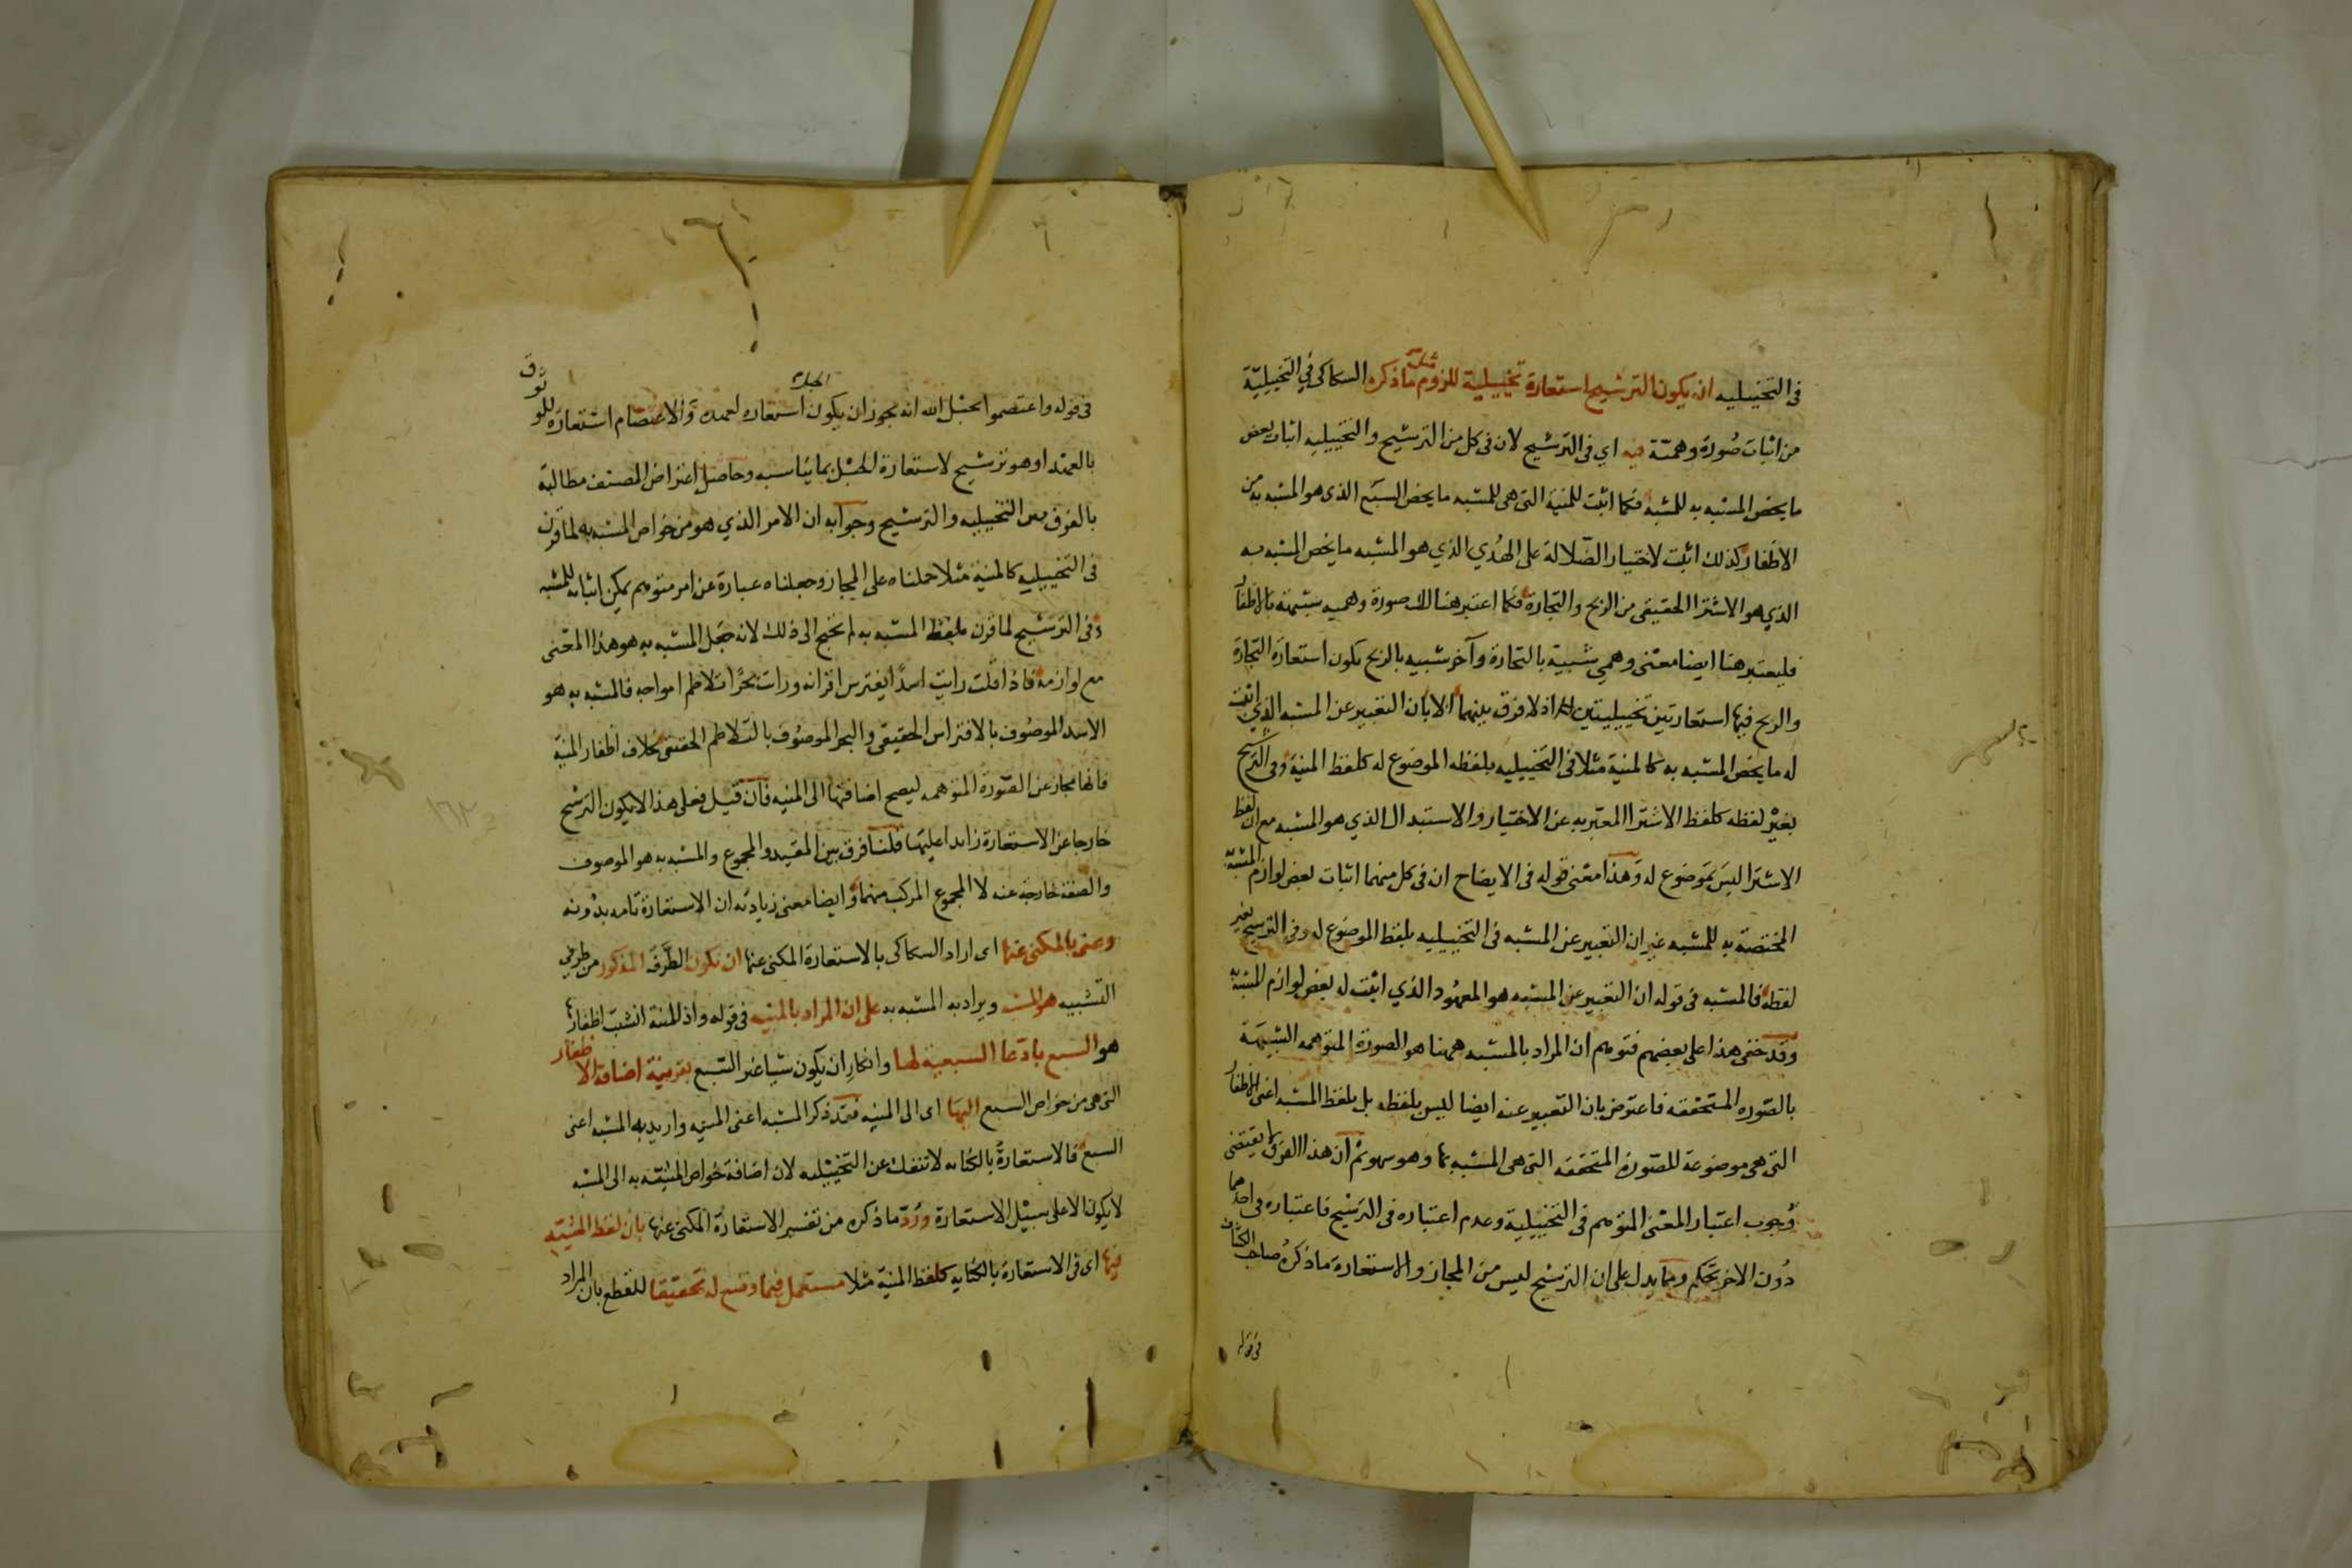 في التخييليه ان يكون الترشيح استعارة تخييلية للزوم مثل ما ذكره السكاكى في التخييلية
من اثبات صورة وهمية فيه اي فى الترشيح لان فى كل من الترشيح والتخييليه اثبات بعض
ما يخص المشبه به للمشبه فكما اثبت للمنية التى هى للمشبه ما يخص السبع الذى هو المشبه به من
الاظفار كذلك اثبت لاختيار الضلالة على الهُدي الذي هو المشبه ما يخص المشبه به
الذي هو الاشترا الحقيقى من الربح والتجارة فكما اعتبر هنالك صورة وهميه شبيهة بالاظفار
فليعتبر هنا ايضا معنى وهمي شبيه بالتجارة وآخر شبيه بالربح يكون استعارة التجارة
والربح فيها استعارتين تخييليتين اذ لا فرق بينهما الا بان التعبير عن المشبه الذي اثبت
له ما يخص المشبه به كالمنية مثلا فى التخييليه بلفظه الموضوع له كلفظ المنية وفى الترشيح
بغير لفظه كلفظ الاشترا المعبر به عن الاختيار والاستبدال الذي هو المشبه مع ان لفظ
الاشترا ليس بموضوع له وهذا معنى قوله فى الايضاح ان فى كل منهما اثبات بعض لوازم المشبه به
المختصة به للمشبه غير ان التعبير عن المشبه فى التخييليه بلفظ الموضوع له وفى الترشيح بغير
لفظه فالمشبه فى قوله ان التعبير عن المشبه هو المعهود الذي اثبت له بعض لوازم المشبه به
وقد خفى هذا على بعضهم فتوهم ان المراد بالمشبه ههنا هو الصورة المتوهمه الشبيهة
بالصوره المتحققه فاعترض بان التعبير عنه ايضا ليس بلفظه بل بلفظ المشبه اعنى الاظفار
التى هى موضوعة للصورة المتحققه التى هى المشبه بها وهو سهو ثم ان هذا الفرق لا يقتضى
وُجوب اعتبار المعنى المتوهم فى التخييلية وعدم اعتباره فى الترشيح فاعتباره فى احدهما
دُون الاخر تحكم ومما يدل على ان الترشيح ليس من المجاز والاستعارة ما ذكره صاحب الكشاف
فى قوله
فى قوله واعتصموا بحبل الله انه يجوز ان يكون الحبل استعاره لعهده والاعتصام استعارة للوثوق
بالعهد او هو ترشيح لاستعارة الحبل بما يناسبه وحاصل اعتراض المصنف مطالبة
بالفرق بين التخييليه والترشيح وجوابه ان الامر الذي هو من خواص المشبه به لما قرن
فى التخييليه كالمنية مثلا حملناه على المجاز وجعلناه عبارة عن امر متوهم يمكن اثباته للمشبه
وفى الترشيح لما قرن بلفظ المشبه به لم نحتج الى ذلك لانه جعل المشبه به هو هذا المعنى
مع لوازمه فاذا قلت رايت اسدًا يفترس اقرانه ورايت بحرًا تتلاطم امواجه فالمشبه به هو
الاسد الموصوف بالافتراس الحقيقى والبحر الموصوف بالتلاطم الحقيقى بخلاف اظفار المنية
فانها مجاز عن الصورة المتوهمه ليصح اضافتها الى المنيه فان قيل فعلى هذا لا يكون الترشيح
خارجا عن الاستعارة زايدا عليها قلنا فرق بين المقيد والمجموع والمشبه به هو الموصوف
والصفة خارجة عنه لا المجموع المركب منهما وايضا معنى زيادته ان الاستعارة تامه بدونه
وعنى بالمكنى عنها اى اراد السكاكى بالاستعارة المكنى عنها ان يكون الطرف المذكور من طرفي
التشبيه هو المشبه ويراد به المشبه به على ان المراد بالمنيه فى قوله واذا المنية انشبت اظفارها
هو السبع بادعا السبعية لها وانكار ان يكون شيا غير السبع بقرينة اضافة الاظفار
التى هى من خواص السبع اليها اى الى المنيه فقد ذكر المشبه اعنى المنيه واريد به المشبه اعنى
السبع فالاستعارة بالكنايه لا تنفك عن التخييليه لان اضافة خواص المشبه به الى المشبه
لا يكون الا على سبيل الاستعارة ورُدّ ما ذكره من تفسير الاستعارة المكنى عنها بان لفظ المشبه
فيها اى فى الاستعارة بالكنايه كلفظ المنية مثلا مستعمل فيما وضع له تحقيقا للقطع بان المراد
١٦٢